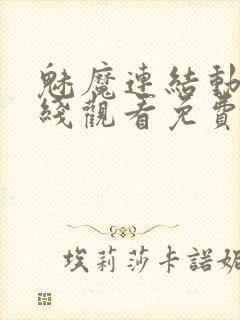 魅魔連結動
綫觀看免費
埃莉莎卡諾妮